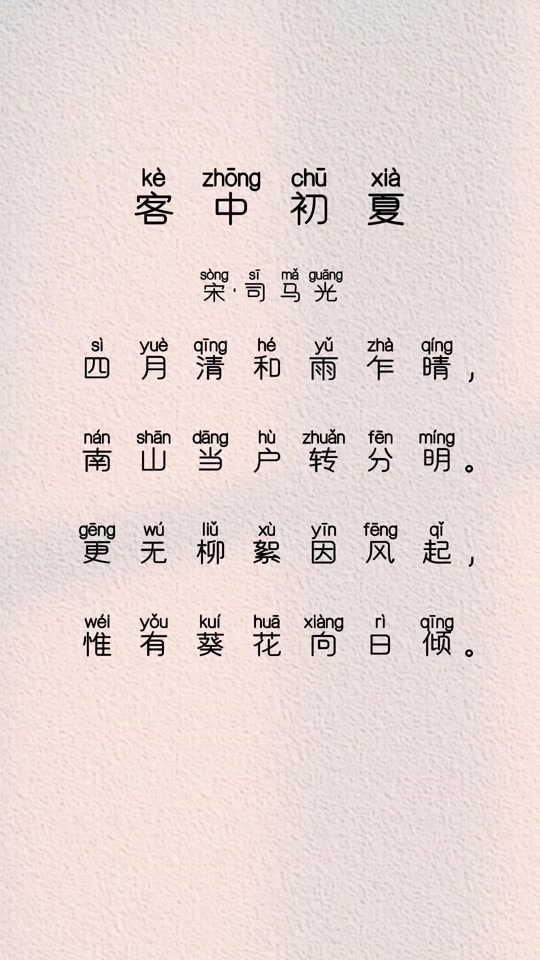 kè zhōng chū xià
客中初夏
sòng sī mǎ guāng
宋·司马光
sì yuè qīng hé yǔ zhà qíng
四月清和雨乍晴，
nán shān dāng hù zhuǎn fēn míng
南山当户转分明。
gēng wú liǔ xù yīn fēng qǐ
更无柳絮因风起，
wéi yǒu kuí huā xiàng rì qīng
惟有葵花向日倾。